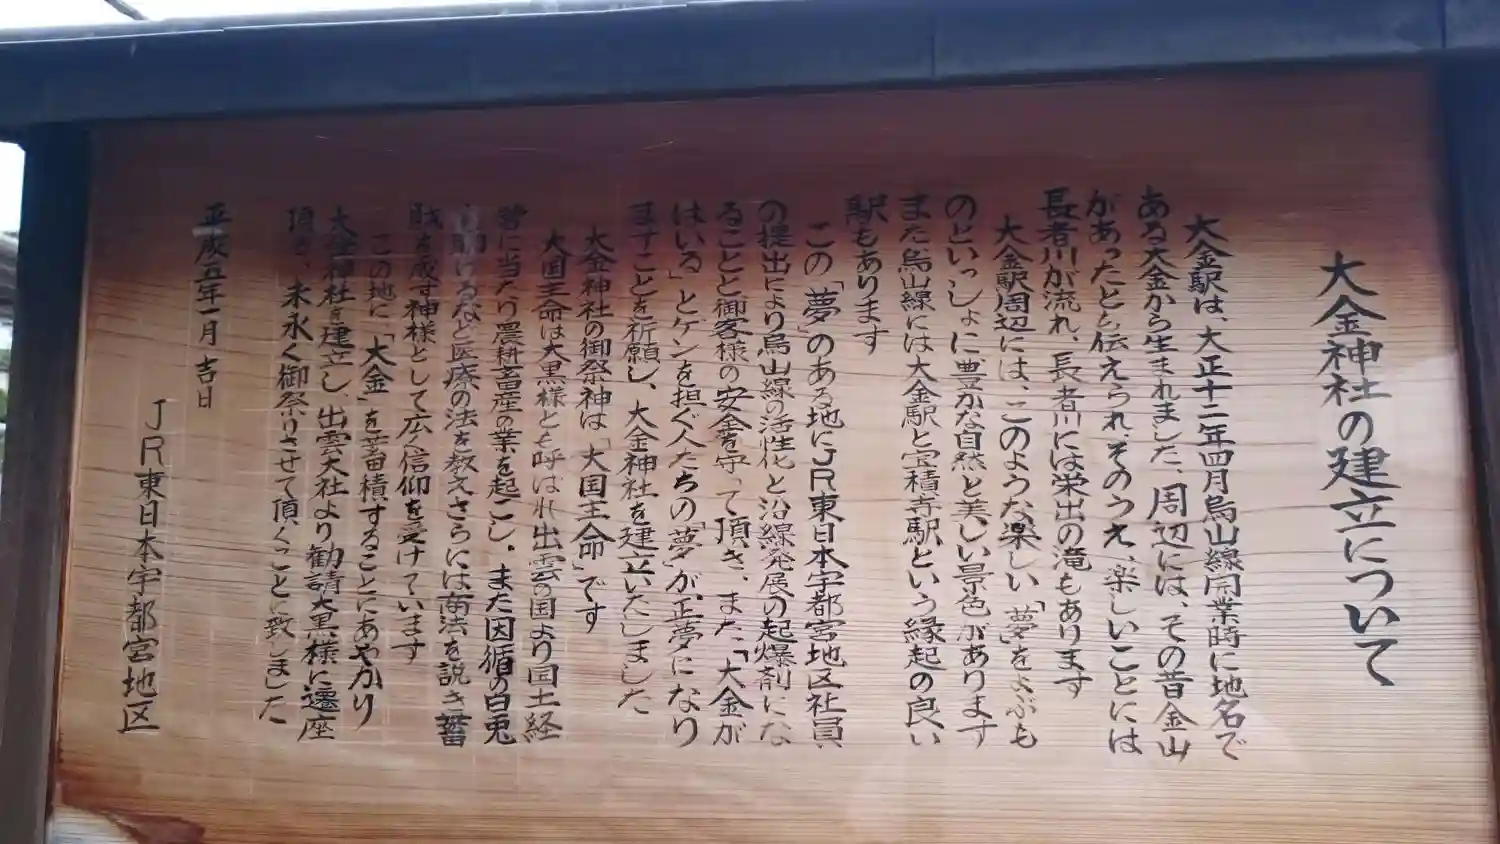 大金神社の建立について
大金駅は、大正十二年四月烏山線開業時に地名で
ある大金から生まれました、周辺には、その昔金山
があったとも伝えられ、そのうえ、楽しいことには
長者川が流れ、長者川には栄出の滝もあります
大金駅周辺には、このような楽しい「夢」をよぶも
のといっしょに豊かな自然と美しい景色があります
また烏山線には大金駅と宝積寺駅という縁起の良い
駅もあります
この「夢」のある地にJR東日本宇都宮地区社員
の提出により烏山線の活性化と沿線発展の起爆剤にな
ることと御客様の安全を守って頂き、また、「大金が
はいる」とゲンを担ぐ人たちの「夢」が、正夢になり
ますことを祈願し、大金神社を建立いたしました
大金神社の御祭神は、「大国主命」です
大国主命は大黒様とも呼ばれ出雲の国より国土経
営に当たり農耕畜産の業を起こし、また因循の白兎
を助けるなど医療の法を教えさらには商法を説き蓄
財を成す神様として広く信仰を受けています
この地に、"大金"を蓄積することにあやかり
大金神社を建立し、出雲大社より勧請大黒様に遷座
頂き、末永く御祭りさせて頂くことに致しました
平成五年一月吉日
JR東日本宇都宮地区